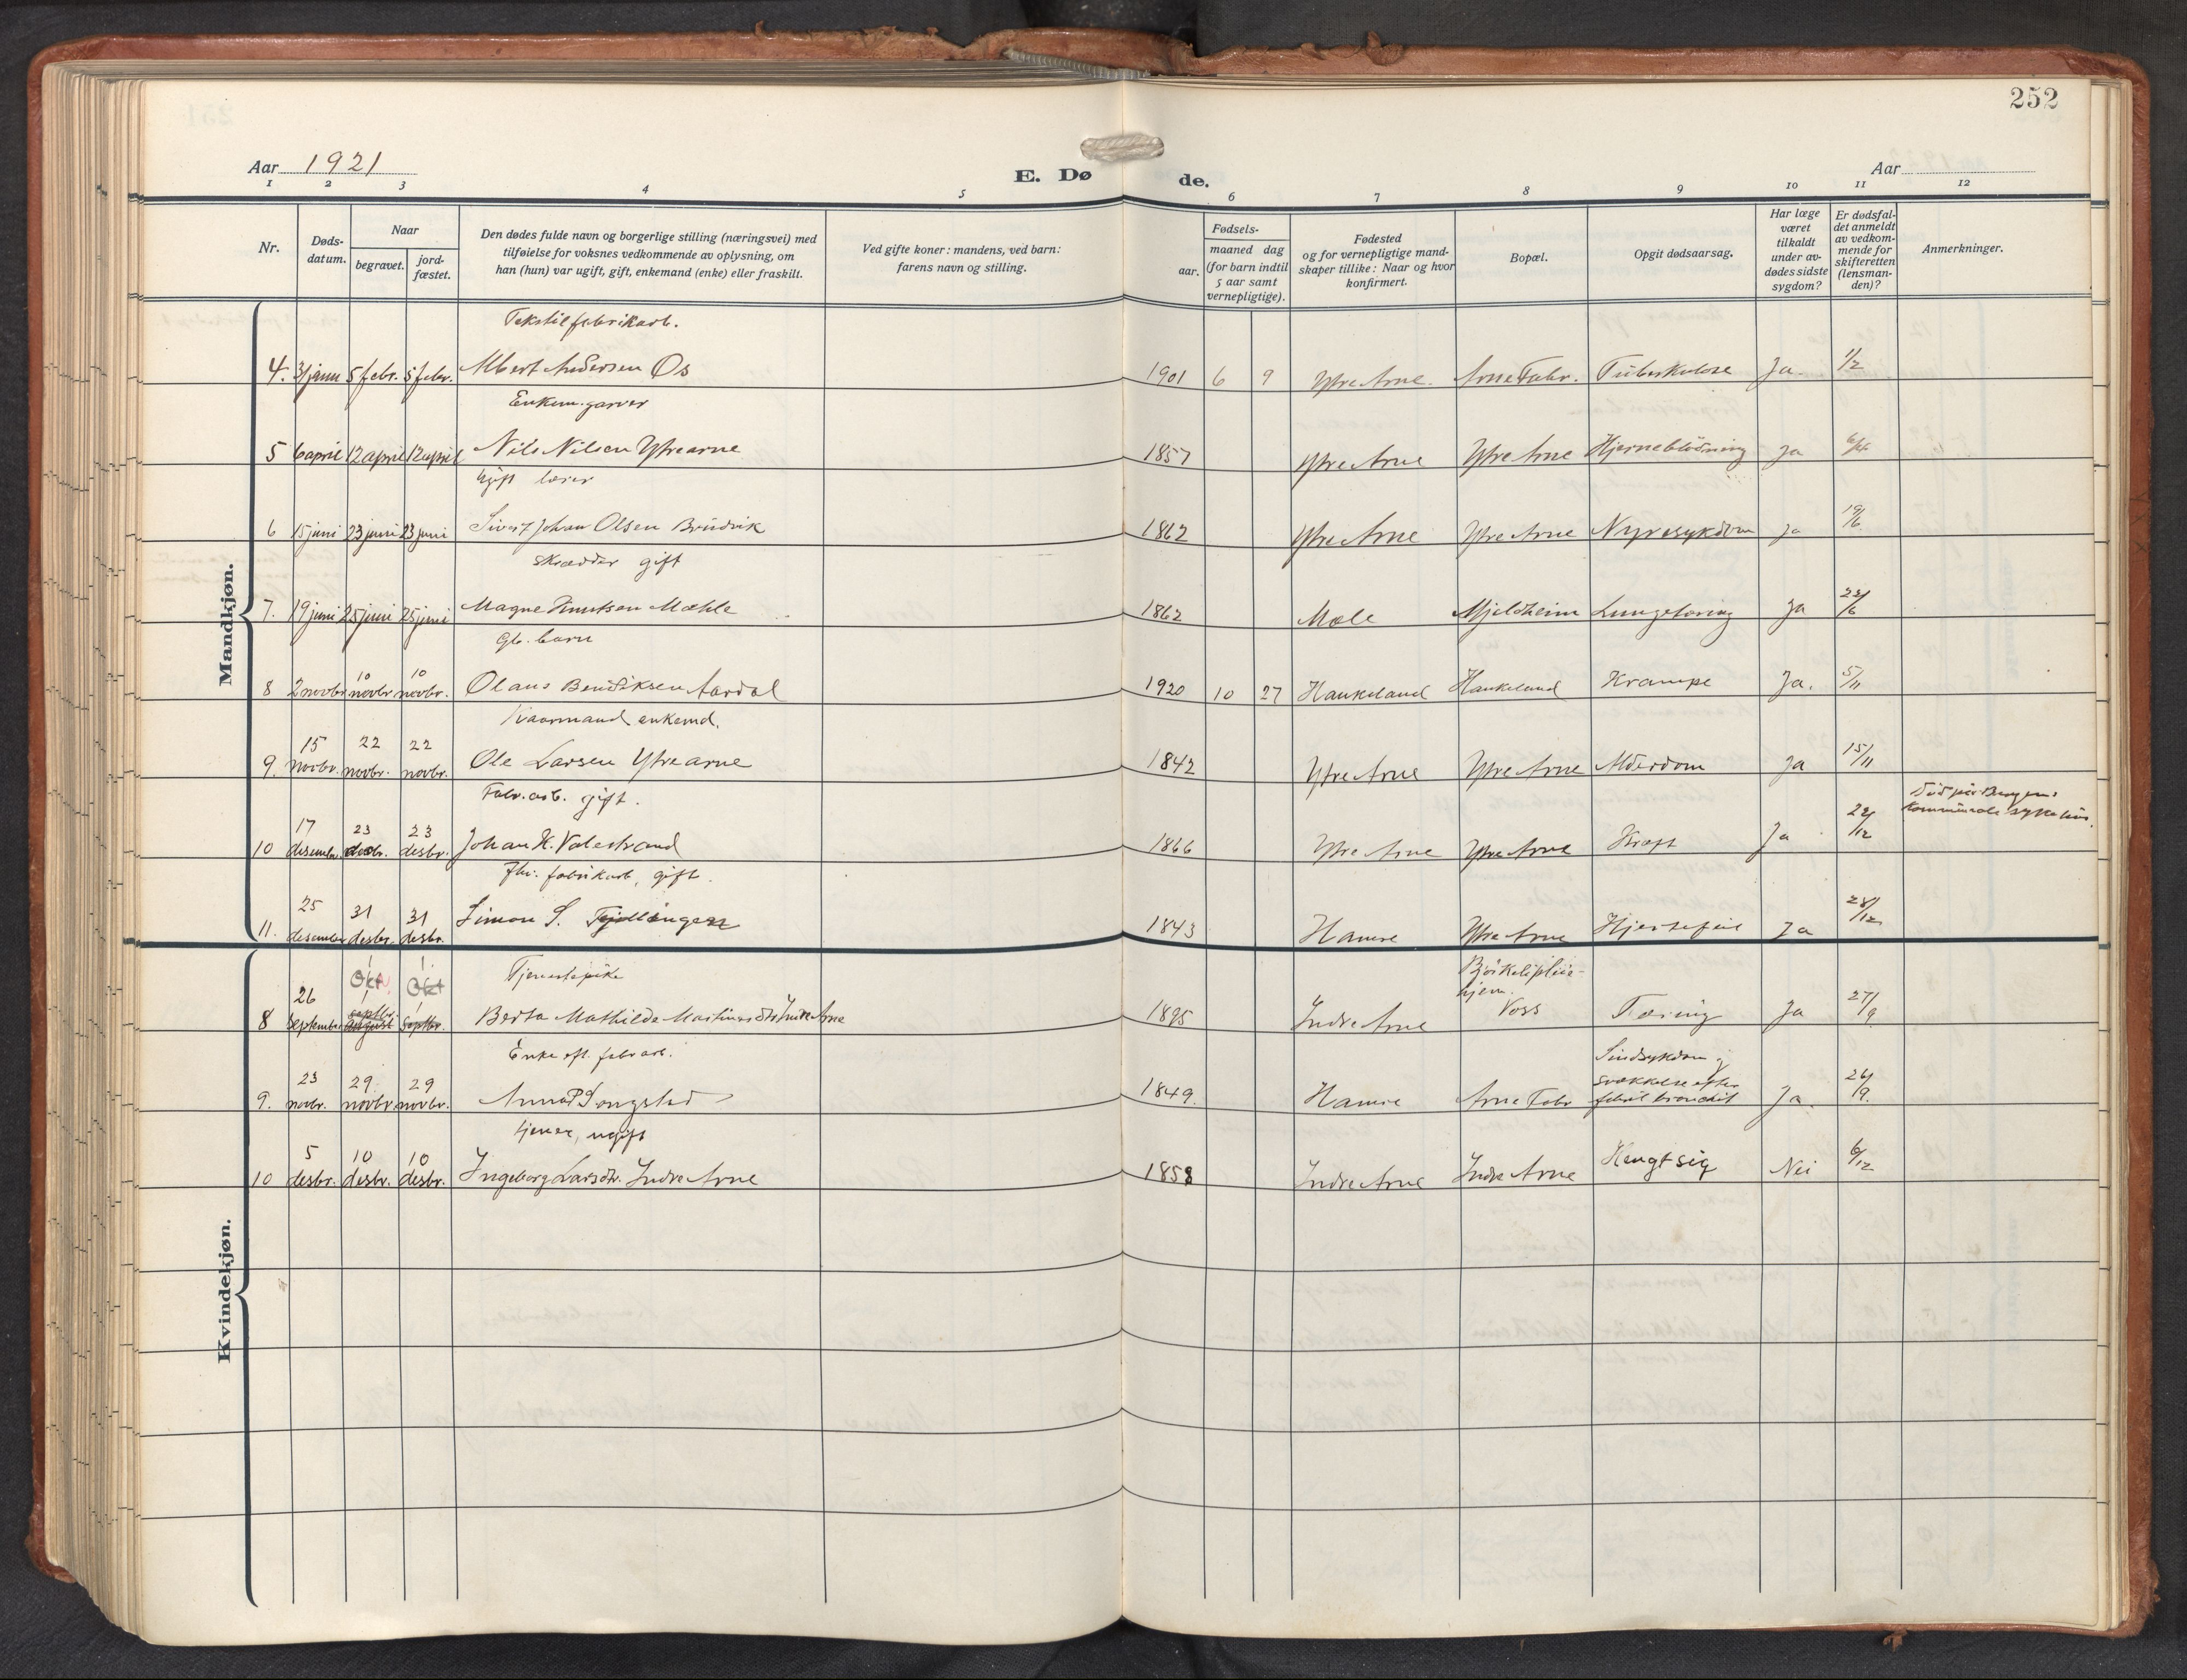 252
Aar 1921
E. Døde.
Aar
1 2 3 4 5 6 7 8 9 10 11 12
Nr.
Døds-
datum.
Naar
begravet.
jord-
fæstet.
Den dødes fulde navn og borgerlige stilling (næringsvei) med
tilføielse for voksnes vedkommende av oplysning, om
han (hun) var ugift, gift, enkemand (enke) eller fraskilt.
Ved gifte koner: mandens, ved barn:
farens navn og stilling.
Fødsels-
aar.
maaned dag
(for barn indtil
5 aar samt
vernepligtige).
Fødested
og for vernepligtige mand-
skaper tillike: Naar og hvor
konfirmert.
Bopæl.
Opgit dødsaarsag.
Har læge
været
tilkaldt
under av-
dødes sidste
sygdom?
Er dødsfal-
det anmeldt
av vedkom-
mende for
skifteretten
(lensman-
den)?
Anmerkninger.
Mandkjøn.
Tekstilfabrikarb.
4. 31 janu 5 febr. 5 febr. Albert Andersen Os 1901 6 9 Ytre Arne. Arne Fabr. Tuberkulose Ja. 1/2
Enkem. garver
5 6 april 12 april 12 april Nils Nilsen Ytrearne 1857 Ytre Arne Ytre Arne Hjerneblødning Ja 6/4
Ugift lærer
6 15 juni 23 juni 23 juni Sivert Johan Olsen Brudvik 1862 Ytre Arne Ytre Arne Nyresykdom Ja 19/6
Skrædder gift
7. 19 juni 25 juni 25 juni Magne Knutsen Mæhle 1862 Mæle Mjeldheim Lungetæring Ja 22/6
Gb. barn
8 2 novbr 10 novbr 10 novbr. Olaus Bendiksen Aardal 1920 10 27 Haukeland Haukeland Krampe Ja. 5/11
Kaarmand enkemd.
9. 15 novbr. 22 novbr. 22 novbr. Ole Larsen Ytrearne 1842 Ytre Arne Ytre Arne Alderdom Ja 15/11
Fabr. arb. gift.
10 17 desember 23 desbr. 23 desbr. Johan K. Valestrand 1866 Ytre Arne Ytre Arne Kræft Ja 22/12 Død på Bergens
kommunale sykehus.
Fhv. fabrikarb, gift.
11. 25 desember 31 desbr. 31 desbr. Simon S. 1843 Hamre Ytre Arne Hjertefeil Ja 28/12
Kvindekjøn.
Tjenestepike
8 26 September 1 Okt septbr. august 1 Okt septbr. Berta Mathilde Martinusdtr Indre Arne 1895 Indre Arne Bjørkelipleie-
hjem. Voss Tæring Ja 27/9
Enke eft. fabr arb.
9. 23 novbr. 29 novbr. 29 novbr. Anna P Songstad 1849. Hamre Arne Fabr Sindsykdom og
svækkelse efter
febril bronchit Ja. 26/9.
tjener, ugift
10 5 desbr. 10 desbr. 10 desbr. Ingeborg Larsdtr. Indre Arne 1858 Indre Arne Indre Arne Hengt sig Nei 6/12